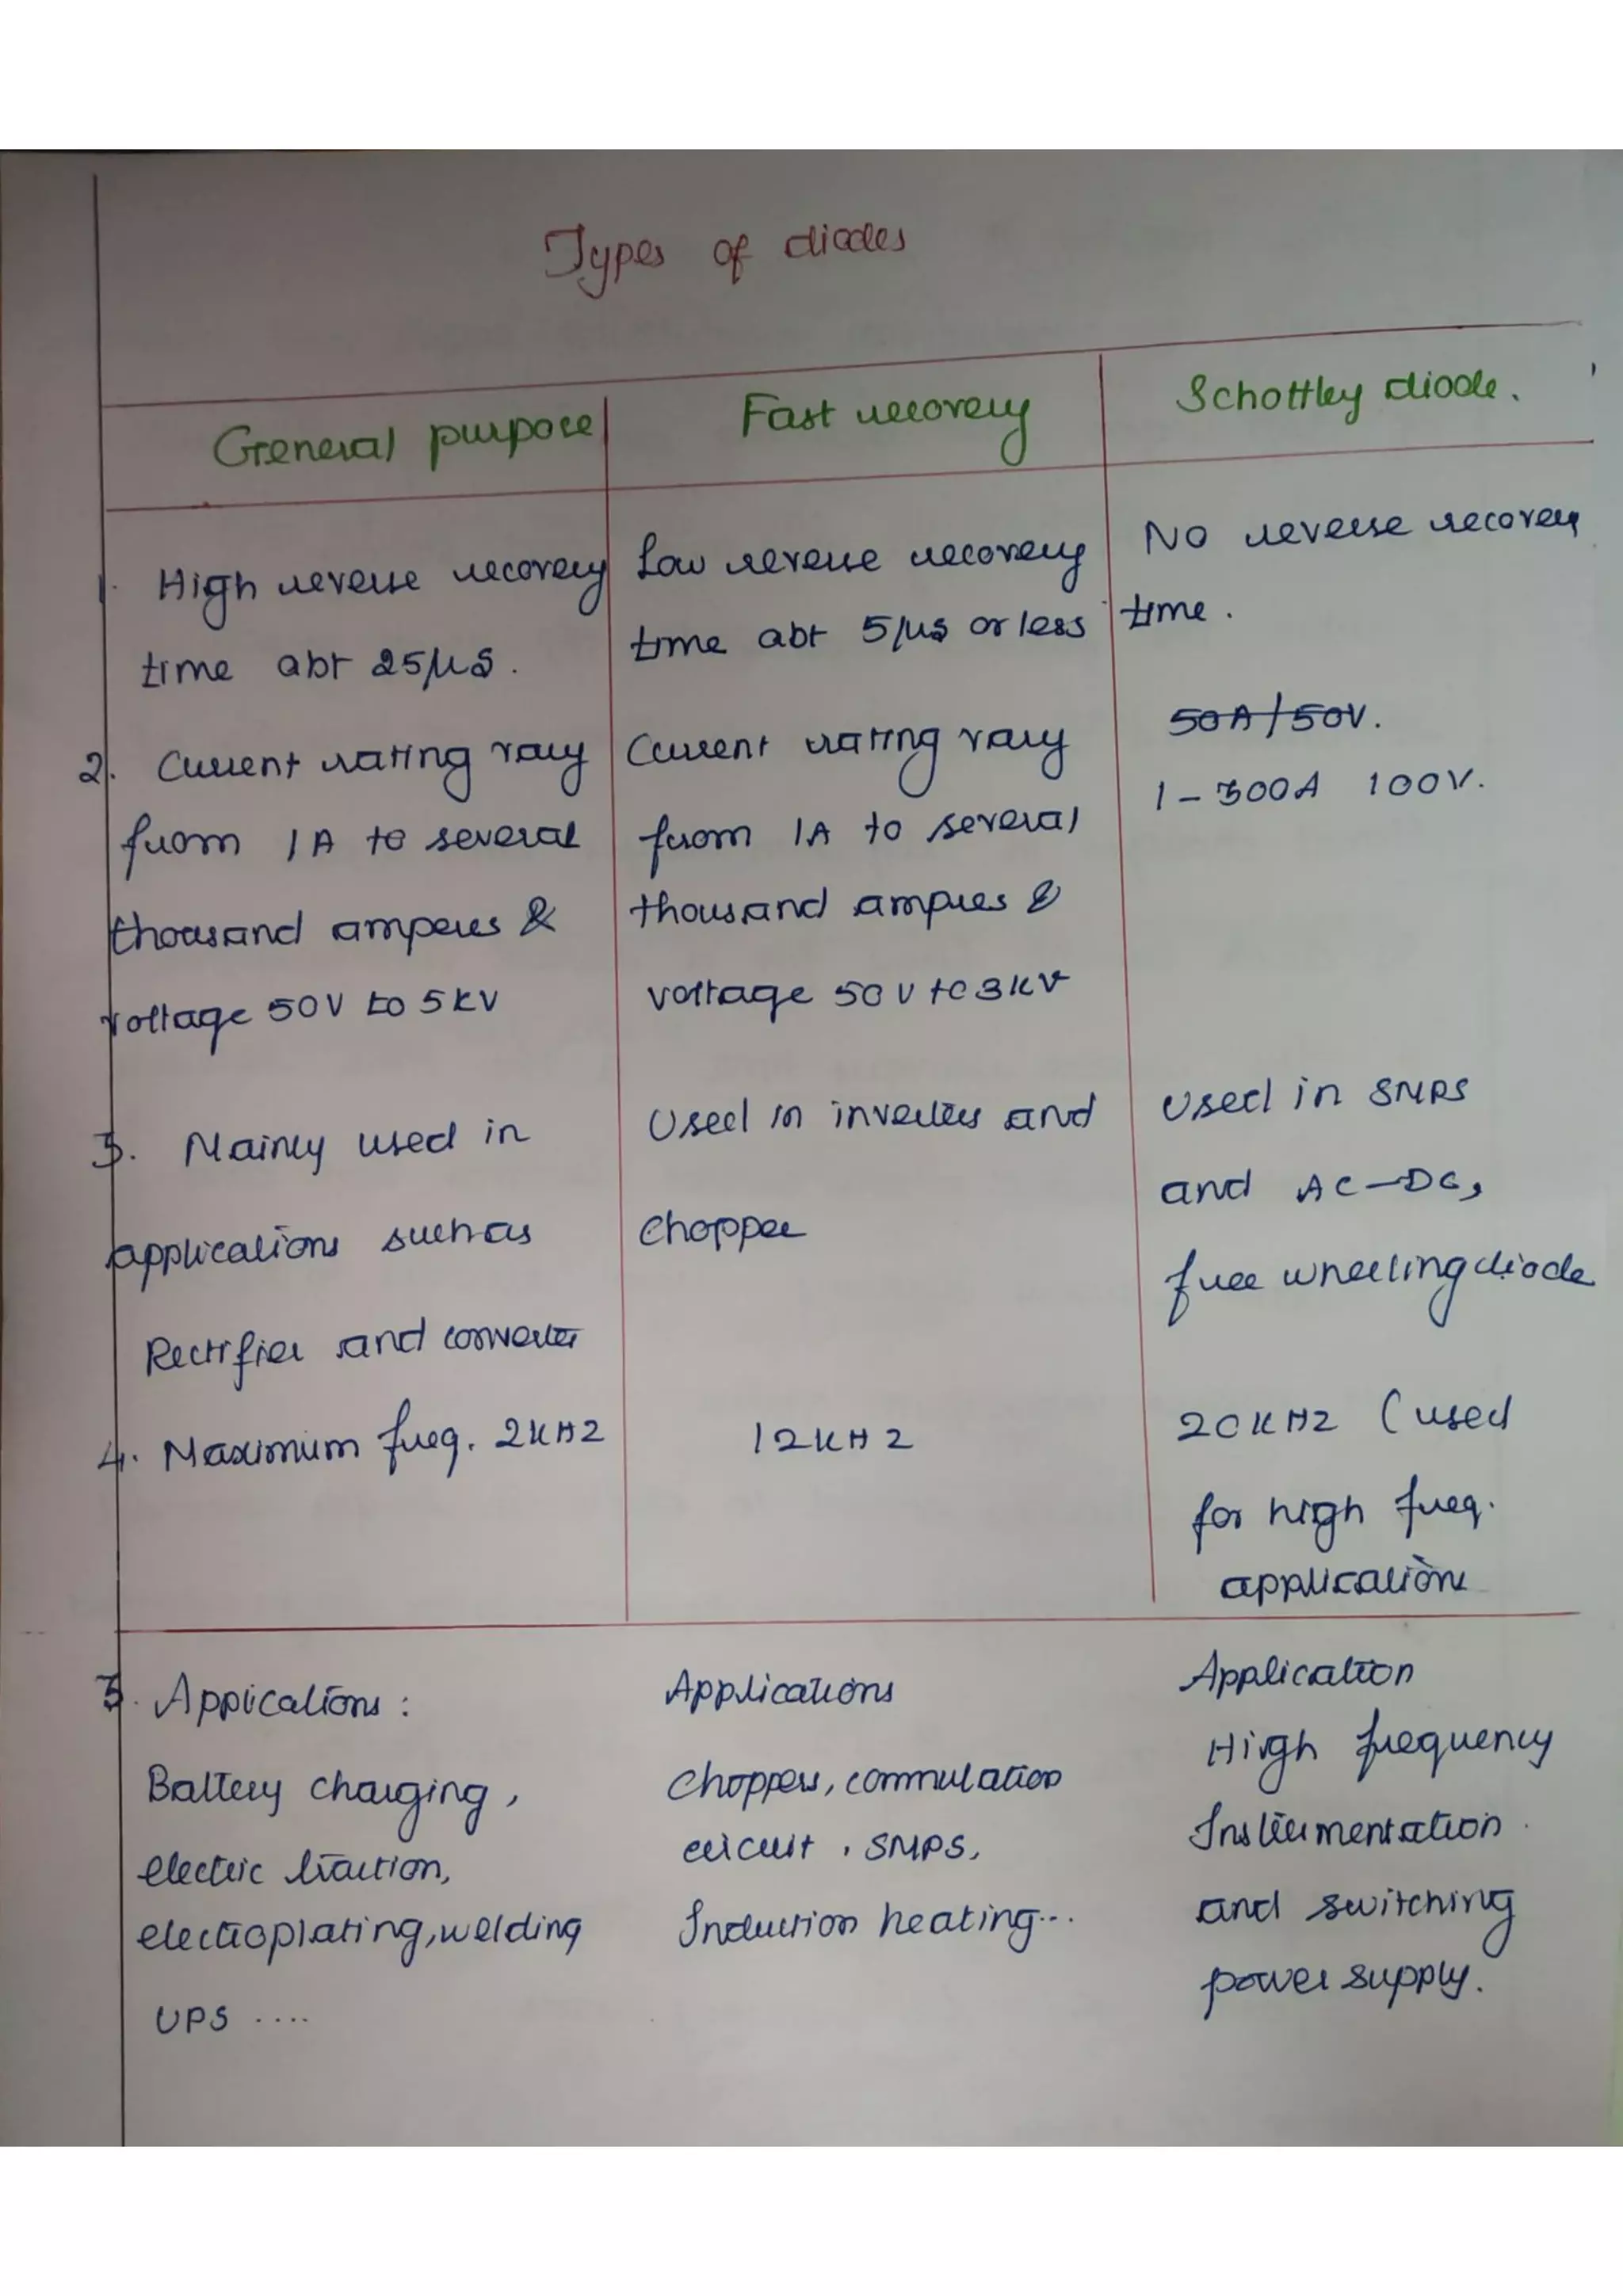 Types of diodes
General purpose
Fast recovery
Schottley diode.
1. High reverse recovery
time abt 25μs.
Low reverse recovery
time abt 5μs or less
No reverse recovery
time.
2. Current rating vary
from 1A to several
thousand amperes &
voltage 50V to 5kV
Current rating vary
from 1A to several
thousand ampres &
voltage 50V to 3kV
50A/50V.
1-300A 100V.
3. Mainly used in
applications such as
Rectifier and converter
Used in inverters and
chopper
Used in SMPS
and AC-DC,
free wheeling diode
4. Maximum freq. 2KHZ
12KHZ
20KHZ (used
for high freq.
application
3. Appications:
Battery charging,
electric traction,
electroplating, welding
UPS ....
Applications
Choppers, commulation
circuit, SMPS,
Induction heating...
Application
High frequency
Instrumentation
and switching
power supply.